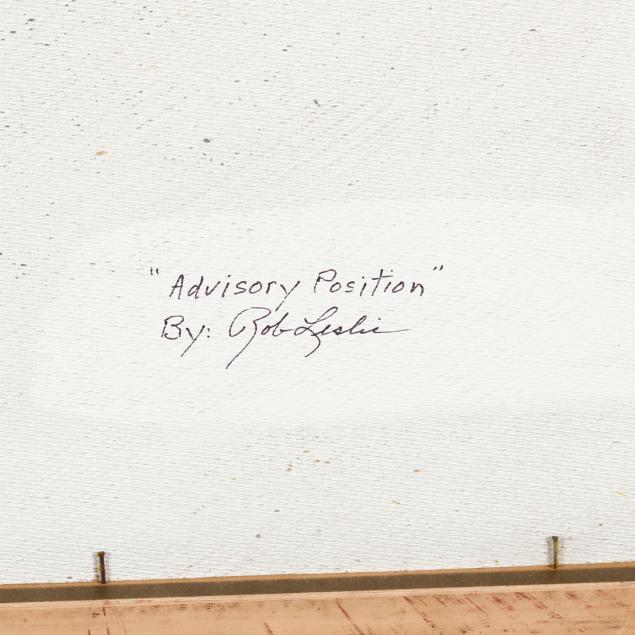 "Advisory Position"
By: Rob Leslie